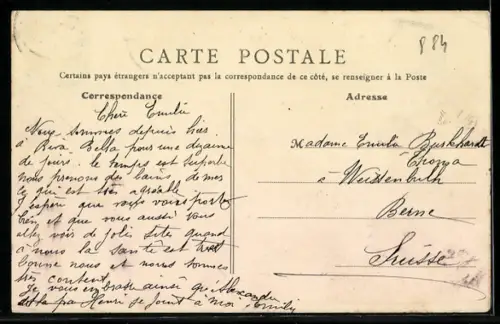 884
CARTE POSTALE
Certains pays étrangers n'acceptant pas la correspondance de ce côté, se renseigner à la Poste
Correspondance
Chère Emilie
Nous sommes depuis hier
à Riva Bella pour une dizaine
de jours. le temps est superbe
nous prenons des bains de mer
ce qui est très agréable
J'espère que vous vous portez
bien et que vous aussi vous
allez voir de jolis sites quand
à nous la santé est très
bonne nous et nous sommes
très content
Je vous embrasse ainsi que Alexandre
Henri se joint à moi Emily
Adresse
Madame Emilie Burkhardt
à
Berne
Suisse